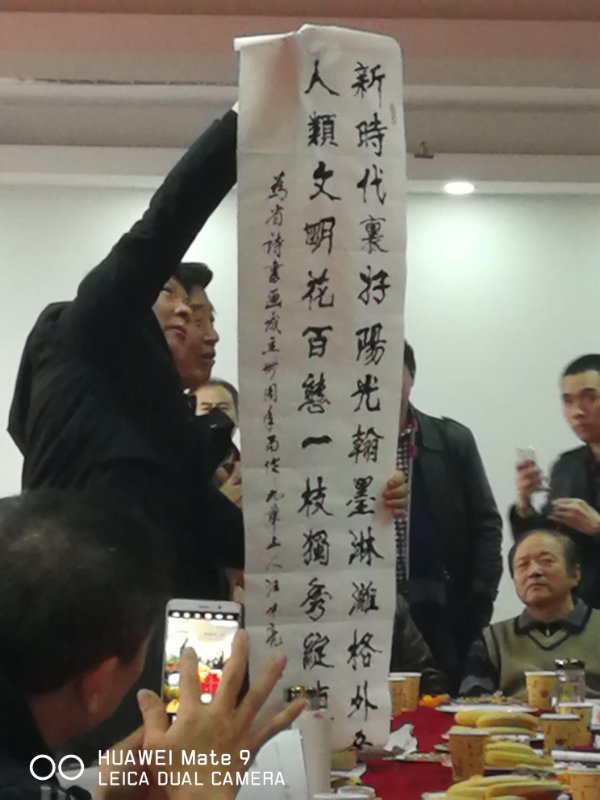 新時代裏好陽光翰墨淋灕格外
人類文明花百態一枝獨秀綻
為省詩書画成立卅周年而作 九華上人汪
HUAWEI Mate 9
LEICA DUAL CAMERA